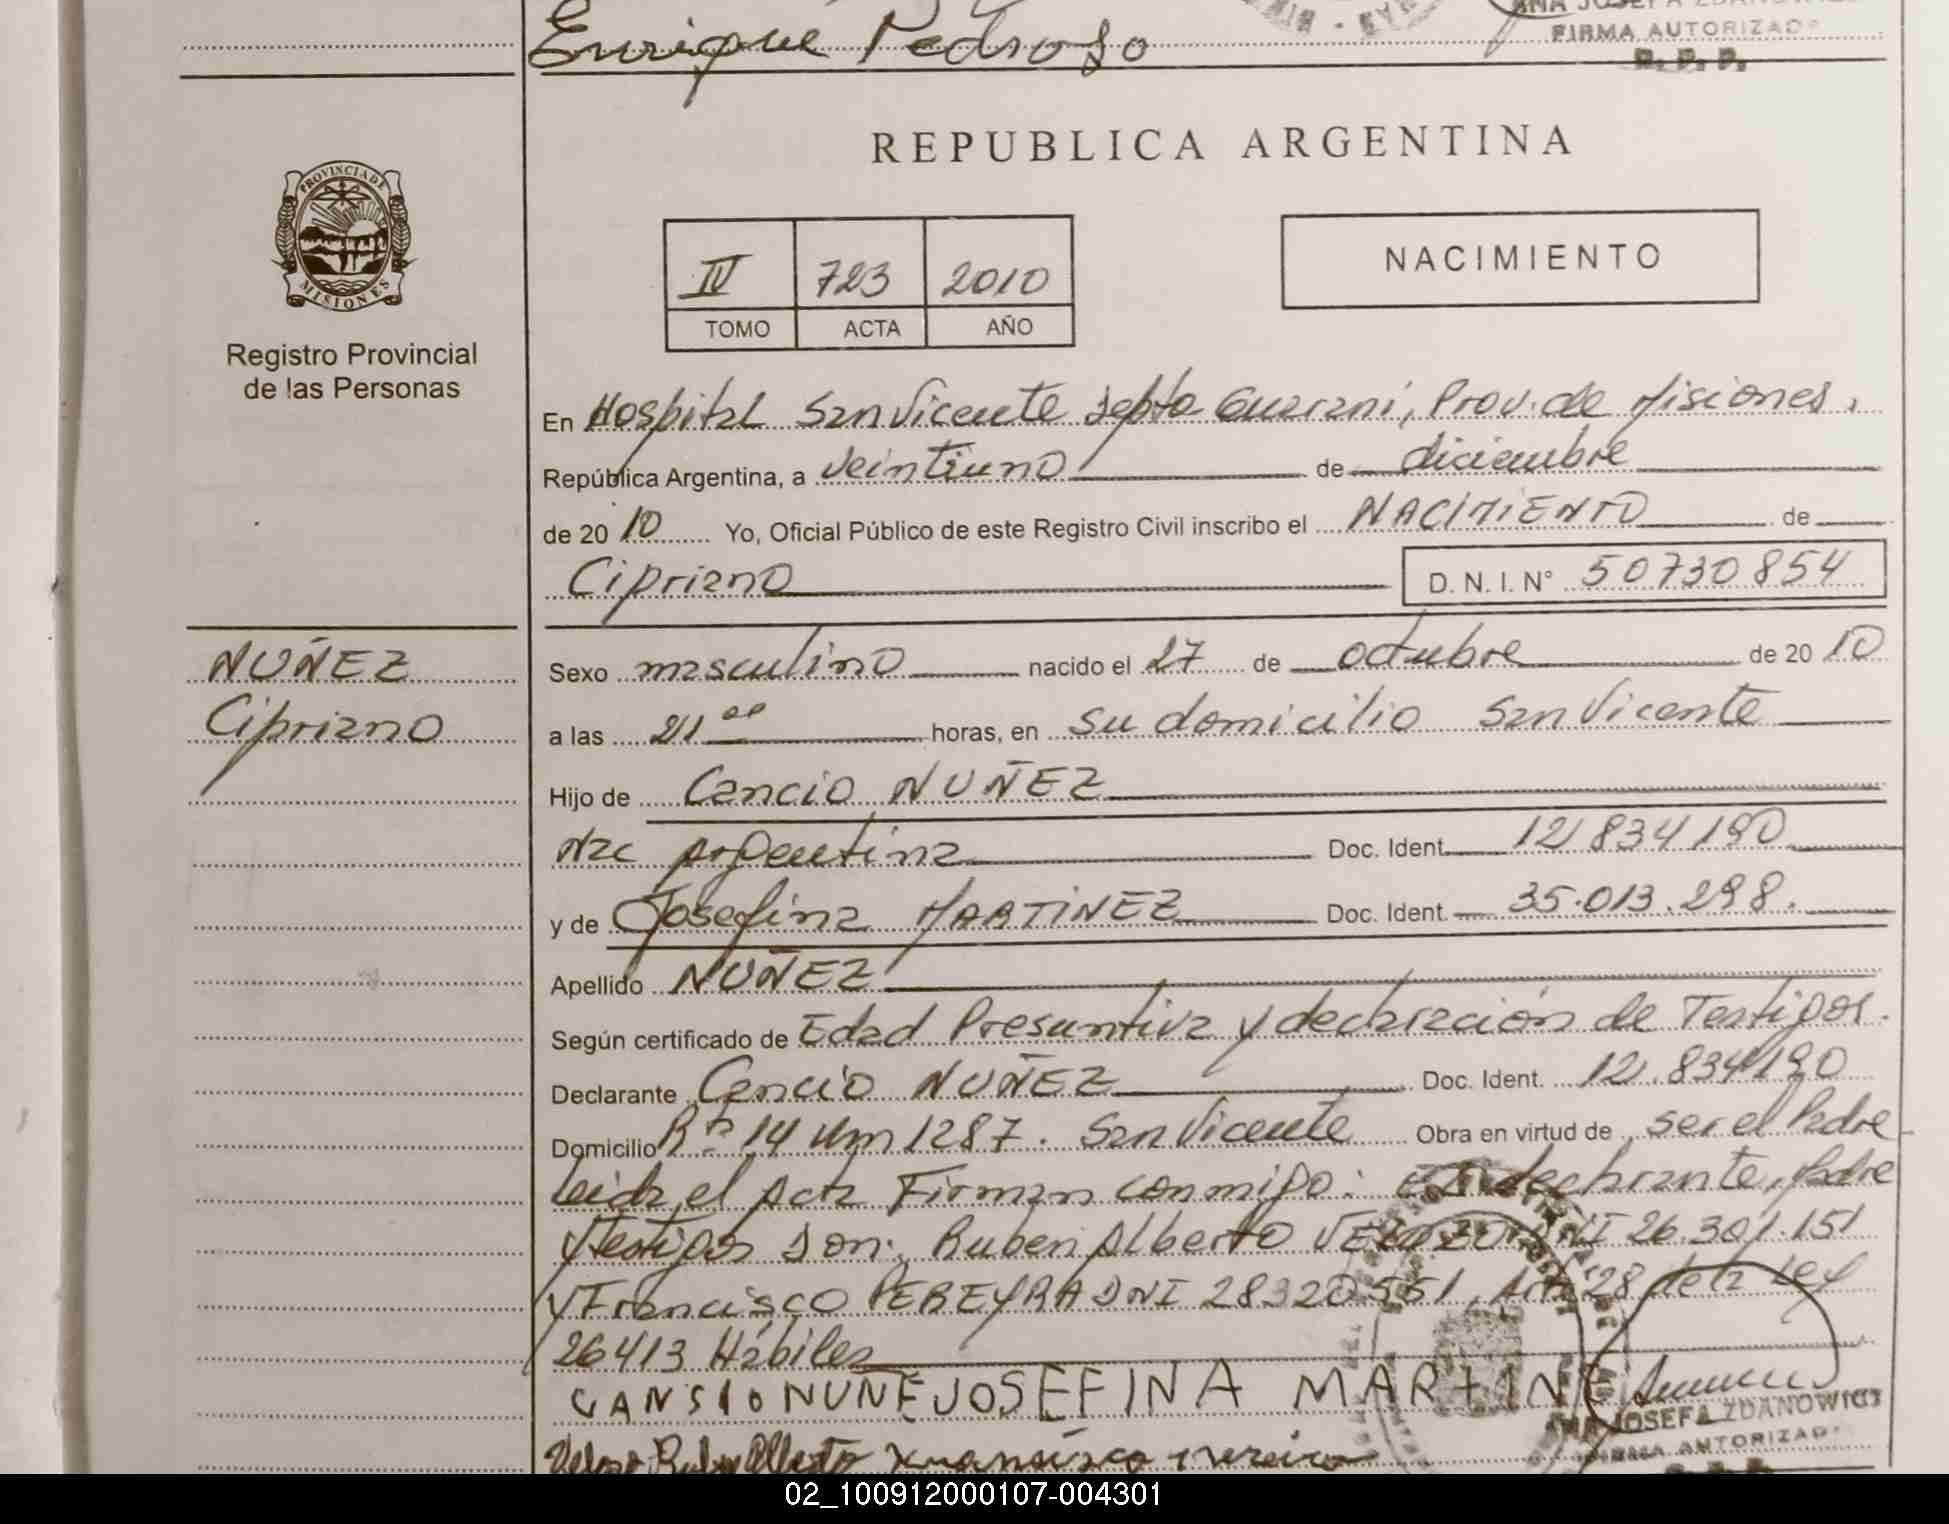 Enrique Pedroso
FIRMA AUTORIZAD
R. P. P.
REPUBLICA ARGENTINA
PROVINCIA DE
MISIONES
Registro Provincial
de las Personas
IV 723 2010
TOMO ACTA AÑO
NACIMIENTO
En Hospital San Vicente Depto Guarani, Prov. de Misiones,
República Argentina, a veintiuno de diciembre
de 2010 Yo, Oficial Público de este Registro Civil inscribo el NACIMIENTO de
Cipriano D. N. I. N° 50730854
NUÑEZ
Cipriano
Sexo masculino nacido el 27 de octubre de 2010
a las 21 00 horas, en su domicilio San Vicente
Hijo de Cancio NUÑEZ
Nac Argentina Doc. Ident. 12 834 190
y de Josefina MARTINEZ Doc. Ident. 35.013.298.
Apellido NUÑEZ
Según certificado de Edad Presuntiva y declaración de Testigos.
Declarante Cancio NUÑEZ Doc. Ident. 12.834190
Domicilio Rta 14 Km 1287. San Vicente Obra en virtud de ser el Padre
Leida el Acta Firman conmigo: declarante, Padre
y testigos Don: Ruben Alberto DNI 26.301.151
y Francisco PEREYRA DNI 28320551, Art 28 de la Ley
26413 Hábiles
CANSIO NUÑE JOSEFINA MARTINE
JOSEFA ZDANOWICZ
FIRMA AUTORIZAD
02_100912000107-004301